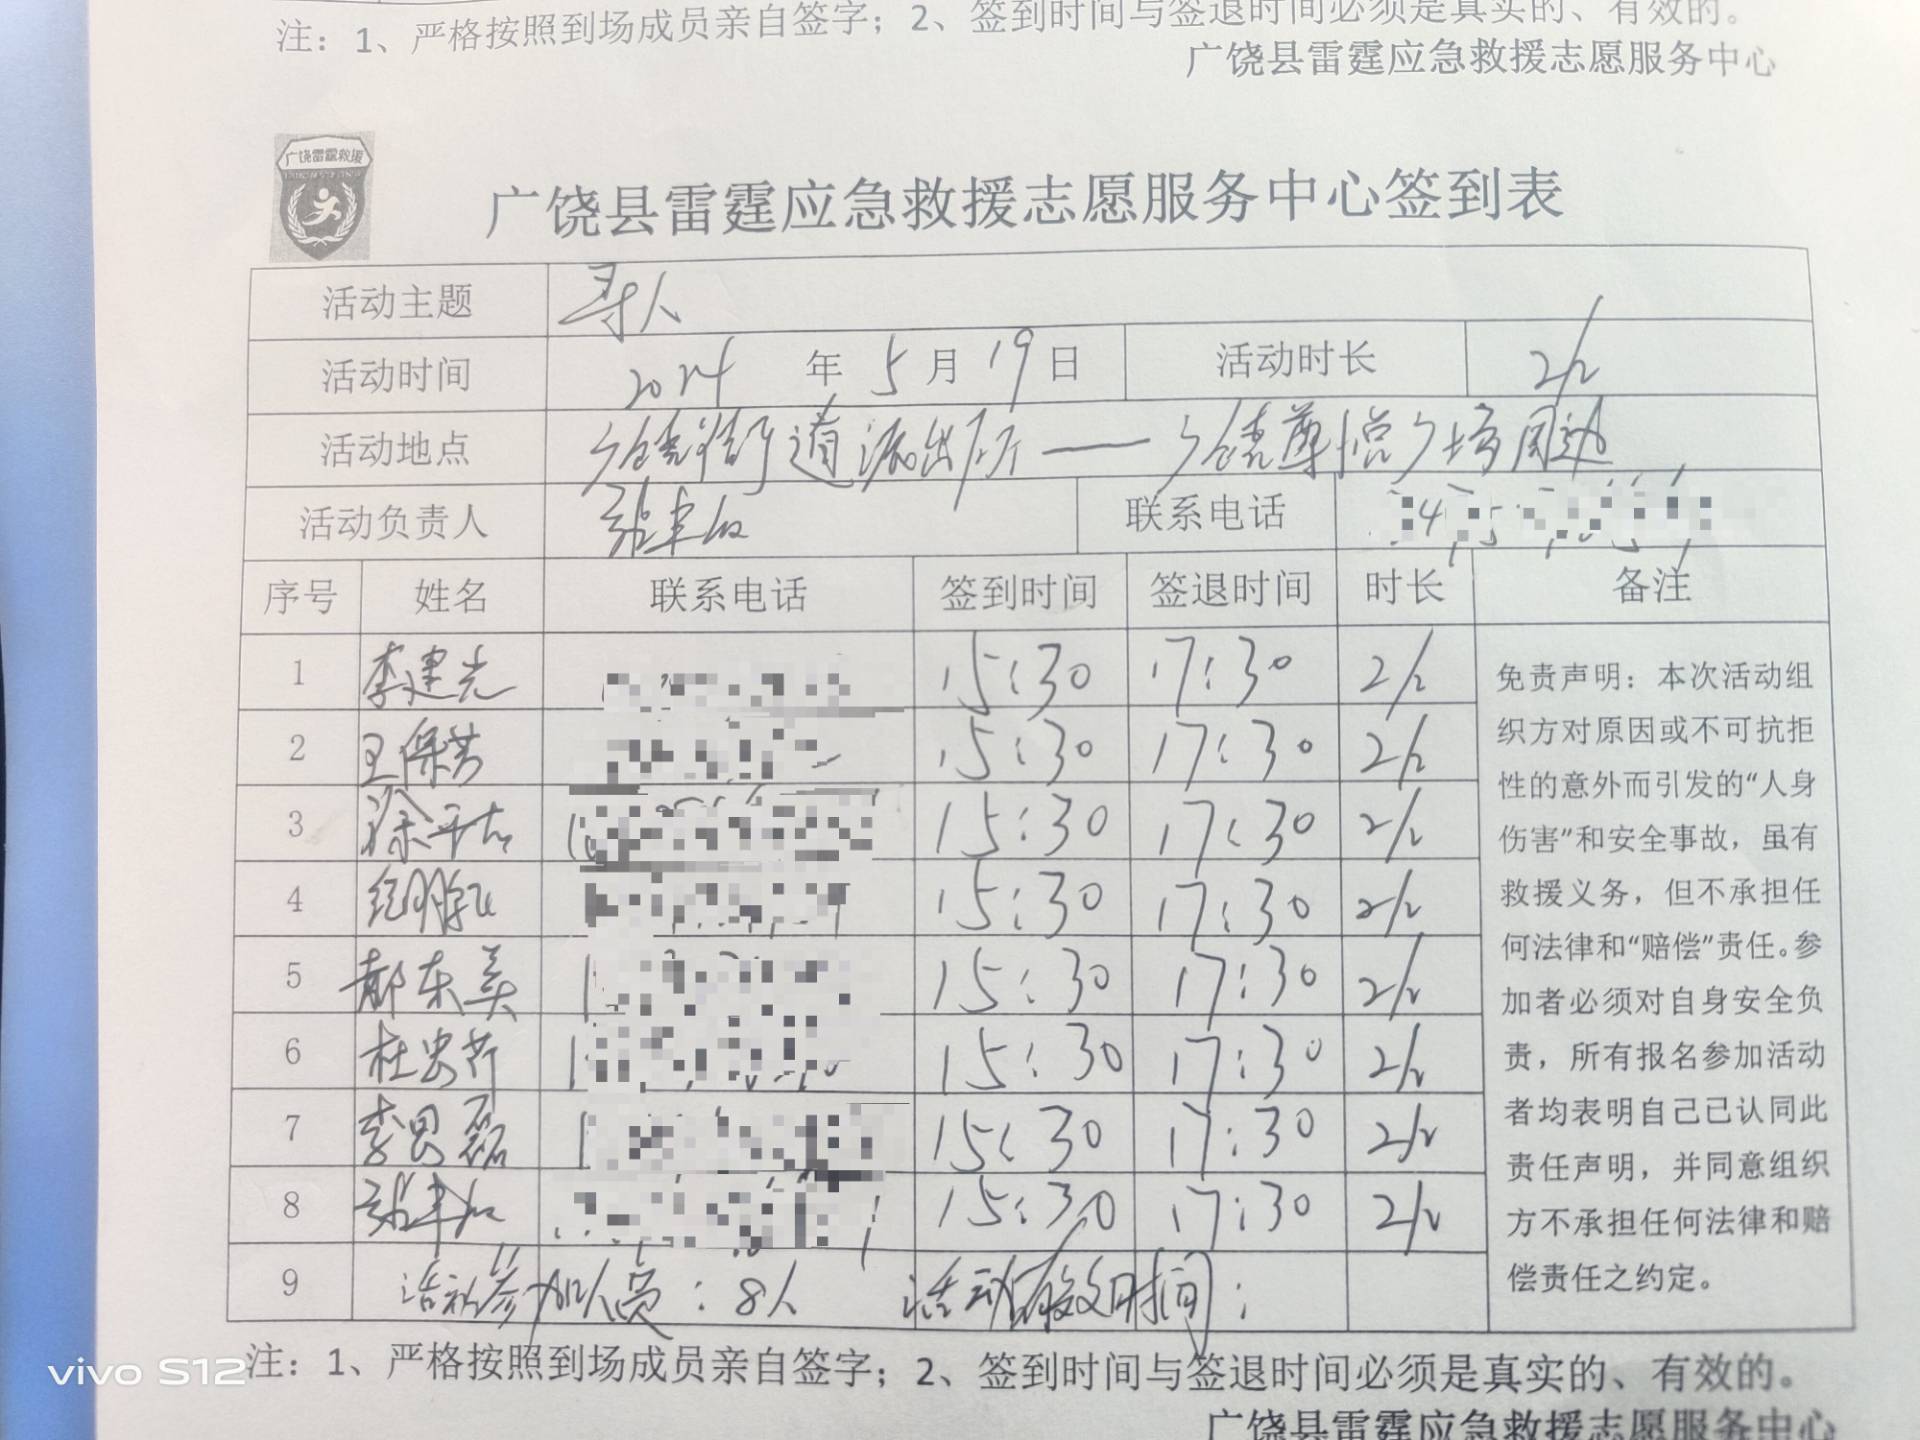 注：1、严格按照到场成员亲自签字；2、签到时间与签退时间必须是真实的、有效的。
广饶县雷霆应急救援志愿服务中心
广饶雷霆救援
广饶县雷霆应急救援志愿服务中心签到表
活动主题 寻人
活动时间 2024 年 5 月 19 日 活动时长 2/2
活动地点 广饶街道派出所——广饶尊悦广场周边
活动负责人 联系电话
序号 姓名 联系电话 签到时间 签退时间 时长 备注
1 李建光 15:30 17:30 2/2
2 王保芳 15:30 17:30 2/2
3 15:30 17:30 2/2
4 15:30 17:30 2/2
5 郝东美 15:30 17:30 2/2
6 杜忠芹 15:30 17:30 2/2
7 李思磊 15:30 17:30 2/2
8 15:30 17:30 2/2
9 活动参加人员：8人 活动有效时间：
免责声明：本次活动组
织方对原因或不可抗拒
性的意外而引发的“人身
伤害”和安全事故，虽有
救援义务，但不承担任
何法律和“赔偿”责任。参
加者必须对自身安全负
责，所有报名参加活动
者均表明自己已认同此
责任声明，并同意组织
方不承担任何法律和赔
偿责任之约定。
注：1、严格按照到场成员亲自签字；2、签到时间与签退时间必须是真实的、有效的。
广饶县雷霆应急救援志愿服务中心
vivo S12